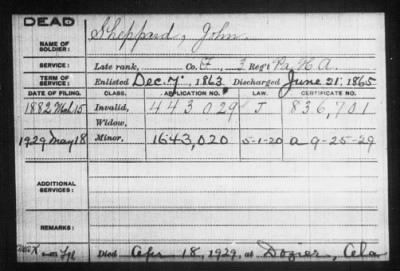 DEAD
NAME OF SOLDIER: Sheppard, John
SERVICE: Late rank, Co. F, 3 Reg't Pa. H A.
TERM OF SERVICE: Enlisted Dec. 7, 1863 Discharged June 21, 1865
DATE OF FILING. CLASS. APPLICATION NO. LAW. CERTIFICATE NO.
1882 Mch. 15 Invalid, 443029 J 836,701
Widow,
1929 May 18 Minor, 1643,020 5-1-20 a 9-25-29
ADDITIONAL SERVICES:
REMARKS:
Died Apr 18, 1929, at Dozier, Ala